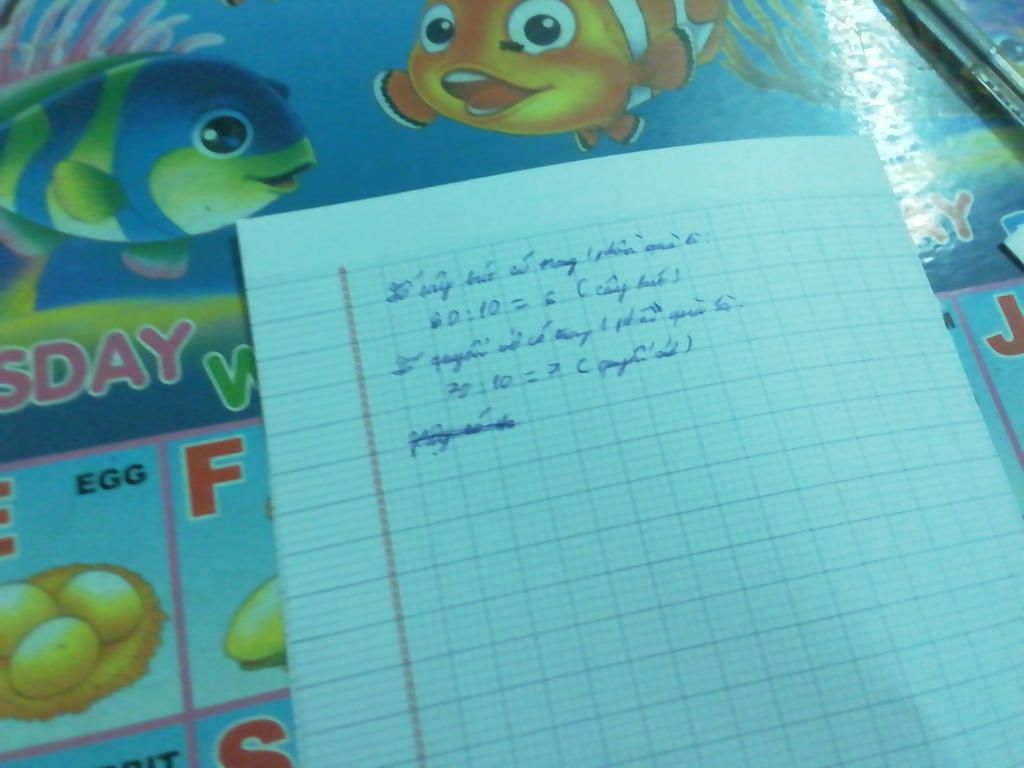 SDAY
W
AY
J
Số cây bút có trong 1 phần quà là:
60 : 10 = 6 ( cây bút )
Số quyển vở có trong 1 phần quà là:
70 : 10 = 7 ( quyển vở )
E
EGG
F
BBIT
S